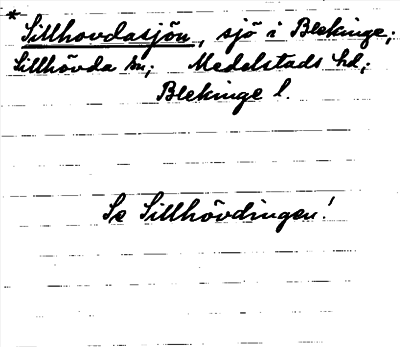 * Sillhovdasjön, sjö i Blekinge;
Sillhövda sn; Medelstads hd;
Blekinge l.
Se Sillhövdingen!